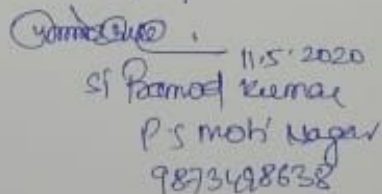 11.5.2020
SI Pramod Kumar
P.S Moti Nagar
9873498638